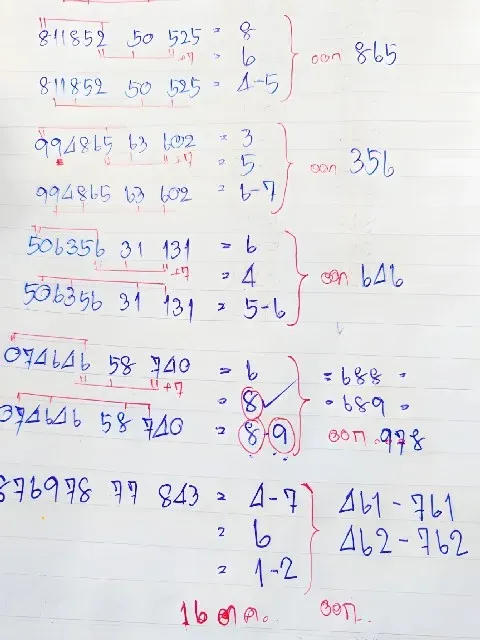 811852 50 525 = 8
+7 = 6 ออก 865
811852 50 525 = 4-5
994865 63 602 = 3
+7 = 5 ออก 356
994865 63 602 = 6-7
506356 31 131 = 6
+7 = 4 ออก 646
506356 31 131 = 5-6
074646 58 740 = 6 = 688 =
+7 = 8 = 689 =
374646 58 740 = 8-9 ออก 978
876978 77 843 = 4-7 461-761
= 6 462-762
= 1-2
16 ต.ค. ออก.